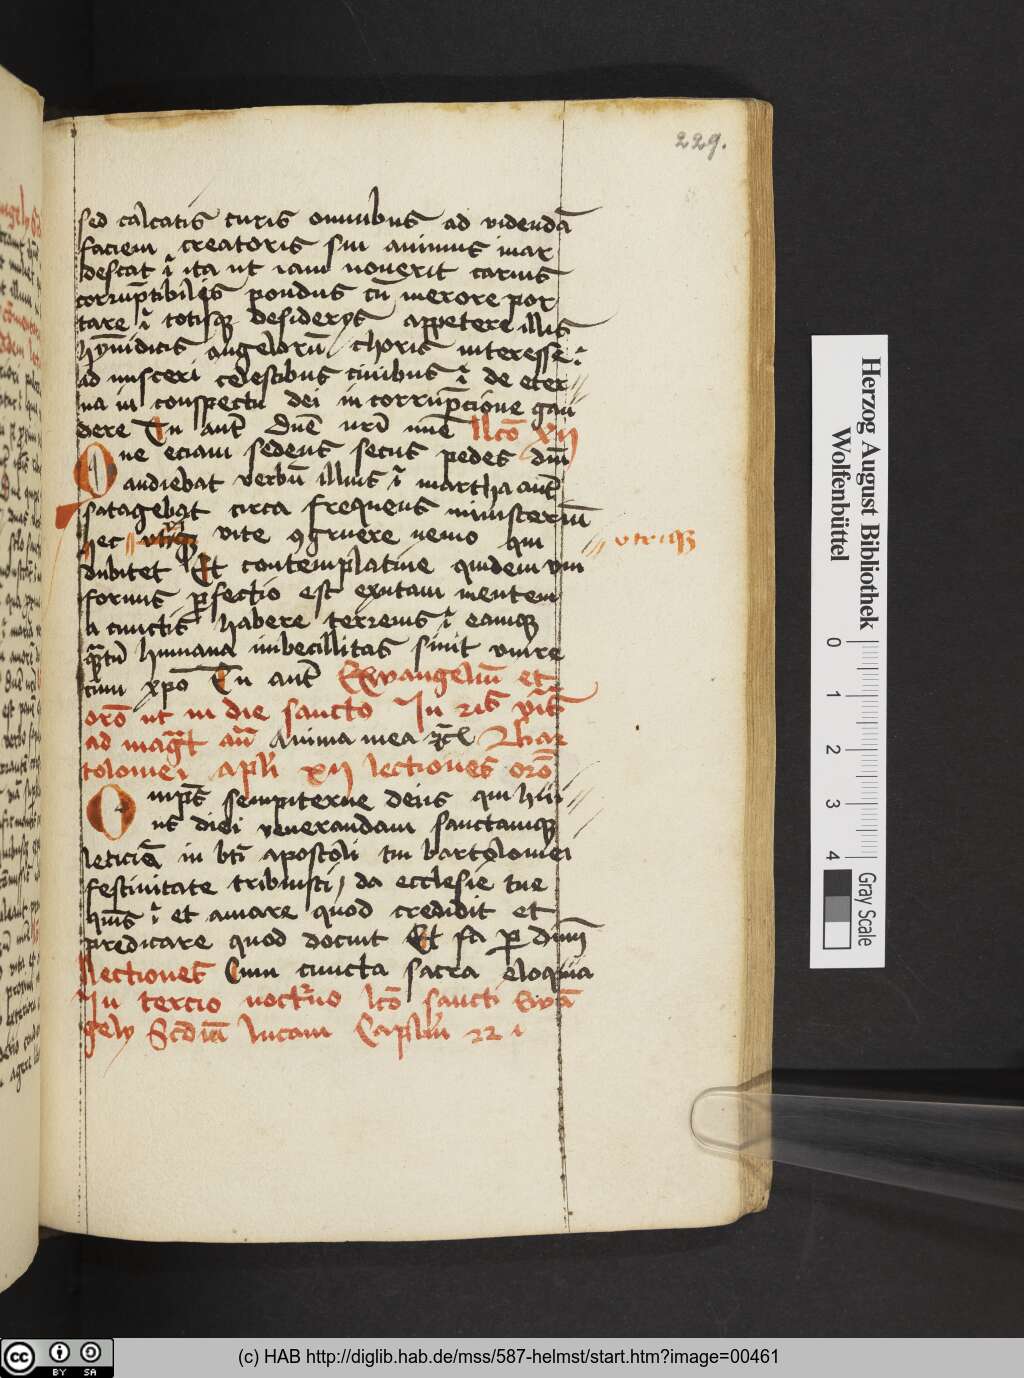 229.
sed calcatis curis omnibus ad videndā
faciem creatoris sui animus inar
descat ⁊ ita ut iam noverit carnis
corrup̄tibilis pondus cū merore por
tare ⁊ totisqꝫ desiderys appetere illis
hȳmidicis angelorū choris interesse ⁊
ad misceri celestibus civibus ⁊ de eter
na in conspectu dei in corrup̄cione gau
dere Tu aut̄ dn̄e nr̄i
llcō XII
Que eciam sedens secus pedes dn̄i
audiebat verbū illius ⁊ martha aut̄
satagebat circa frequens ministeriū
hec vite ꝯgruere nemo qui
utriqꝫ
dubitet Et contemplative quidem vni
formis ꝑfectio est exutam mentem
a cunctis habere terrenis ⁊ eamqꝫ
humana imbecillitas sinit unire
cum xp̄o Tu aut̄ Ewangeliū et
orō ut in die sancto In
ad mag̅t an̄ Anima mea Bhar
tolomei apl̄i xii lectiones orō
Omp̄s sempiterne deus qui hui
us diei venerandam sanctamqꝫ
leticiā in bt̄i apostoli tui bartolomei
festivitate tribuisti da ecclesie tue
qs̄ ⁊ et amare quod credidit et
predicare quod docuit Et ꝑ
llectiones Cum cuncta sacra eloquia
In tercio noct̄no lcō sancti Ewā
gely Scd̄m lucam Capl̄m 22 i
Herzog August Bibliothek
Wolfenbüttel
0 1 2 3 4
Gray Scale
cc BY SA
(c) HAB http://diglib.hab.de/mss/587-helmst/start.htm?image=00461